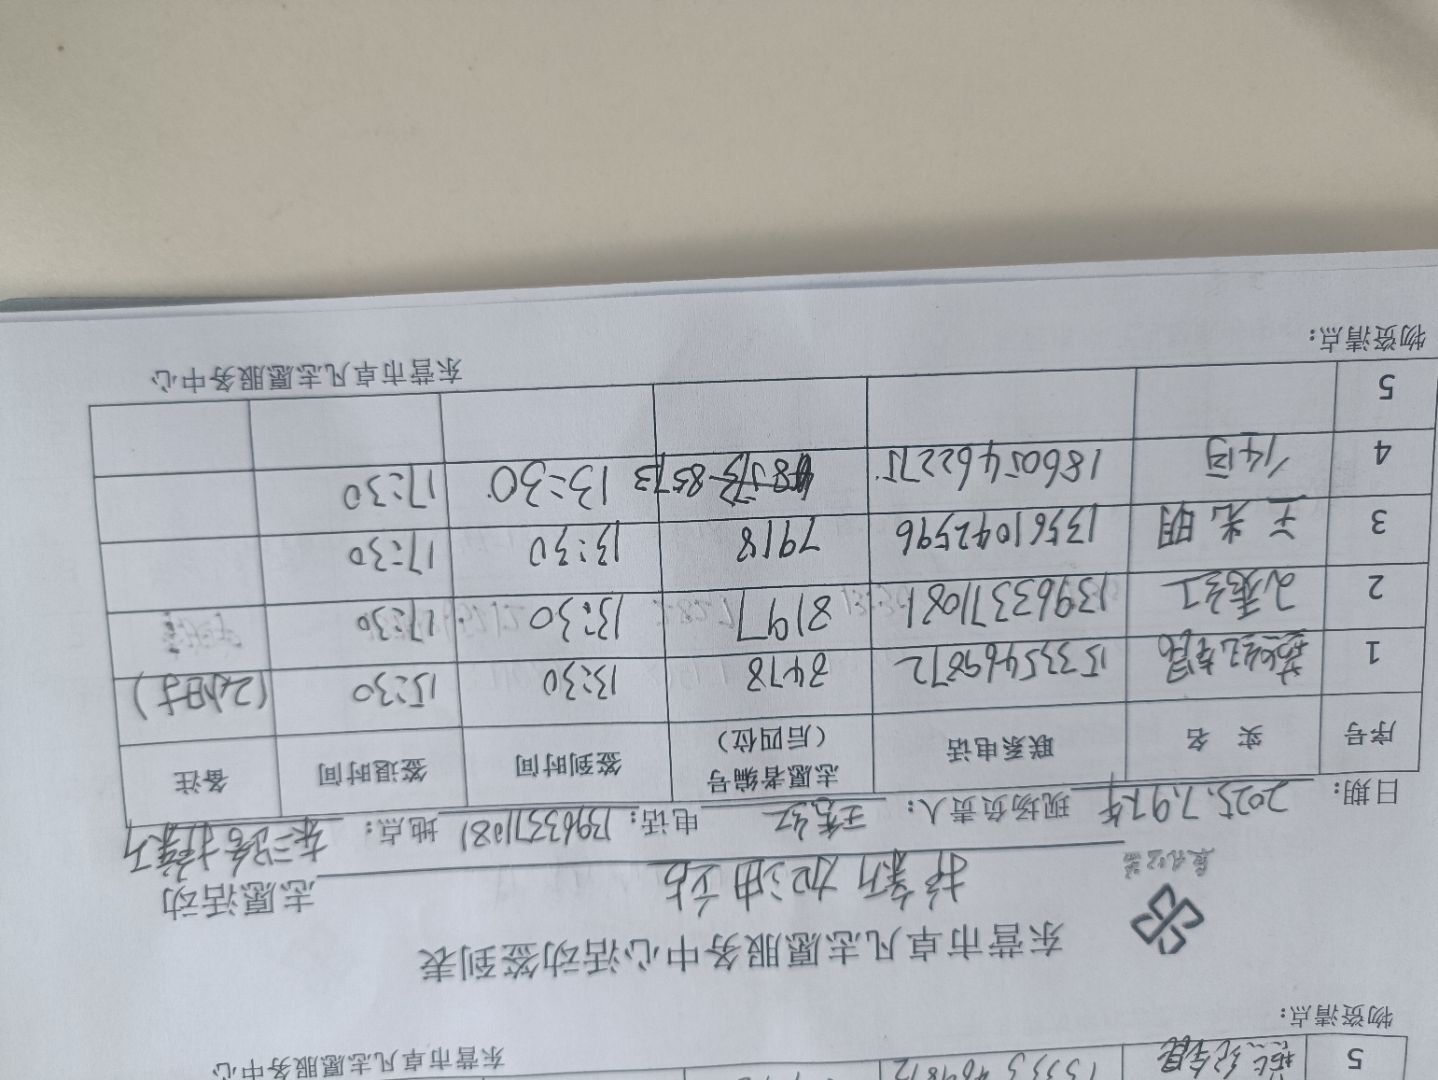 5 1533546 9872
物资清点： 东营市卓凡志愿服务中心
东营市卓凡志愿服务中心活动签到表
加油站 志愿活动
日期：2025.7.9 现场负责人： 电话：13963371081 地点：
序号 实 名 联系电话 志愿者编号（后四位） 签到时间 签退时间 备注
1 15335469872 8478 13:30 15:30 (2小时)
2 13963371081 8197 13:30 17:30
3 王光明 13561042596 7918 13:30 17:30
4 18605462275 8573 13:30 17:30
5
物资清点： 东营市卓凡志愿服务中心